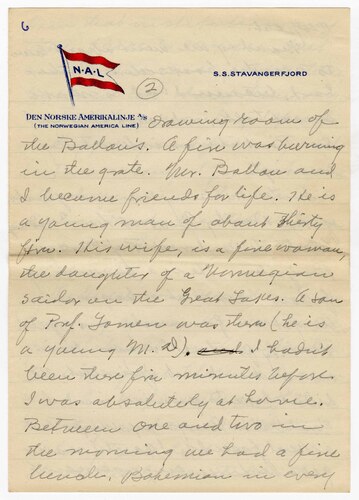 6
N·A·L
2
S.S. STAVANGERFJORD
DEN NORSKE AMERIKALINJE A/S
(THE NORWEGIAN AMERICA LINE)
drawing room of
the Ballou's. A fire was burning
in the grate. Mr. Ballou and
I became friends for life. He is
a young man of about thirty
five. His wife, is a fine woman,
the daughter of a Norwegian
sailor on the Great Lakes. A son
of Prof. was there (he is
a young M.D.). and I hadn't
been there five minutes before
I was absolutely at home.
Between one and two in
the morning we had a fine
lunch, Bohemian in every